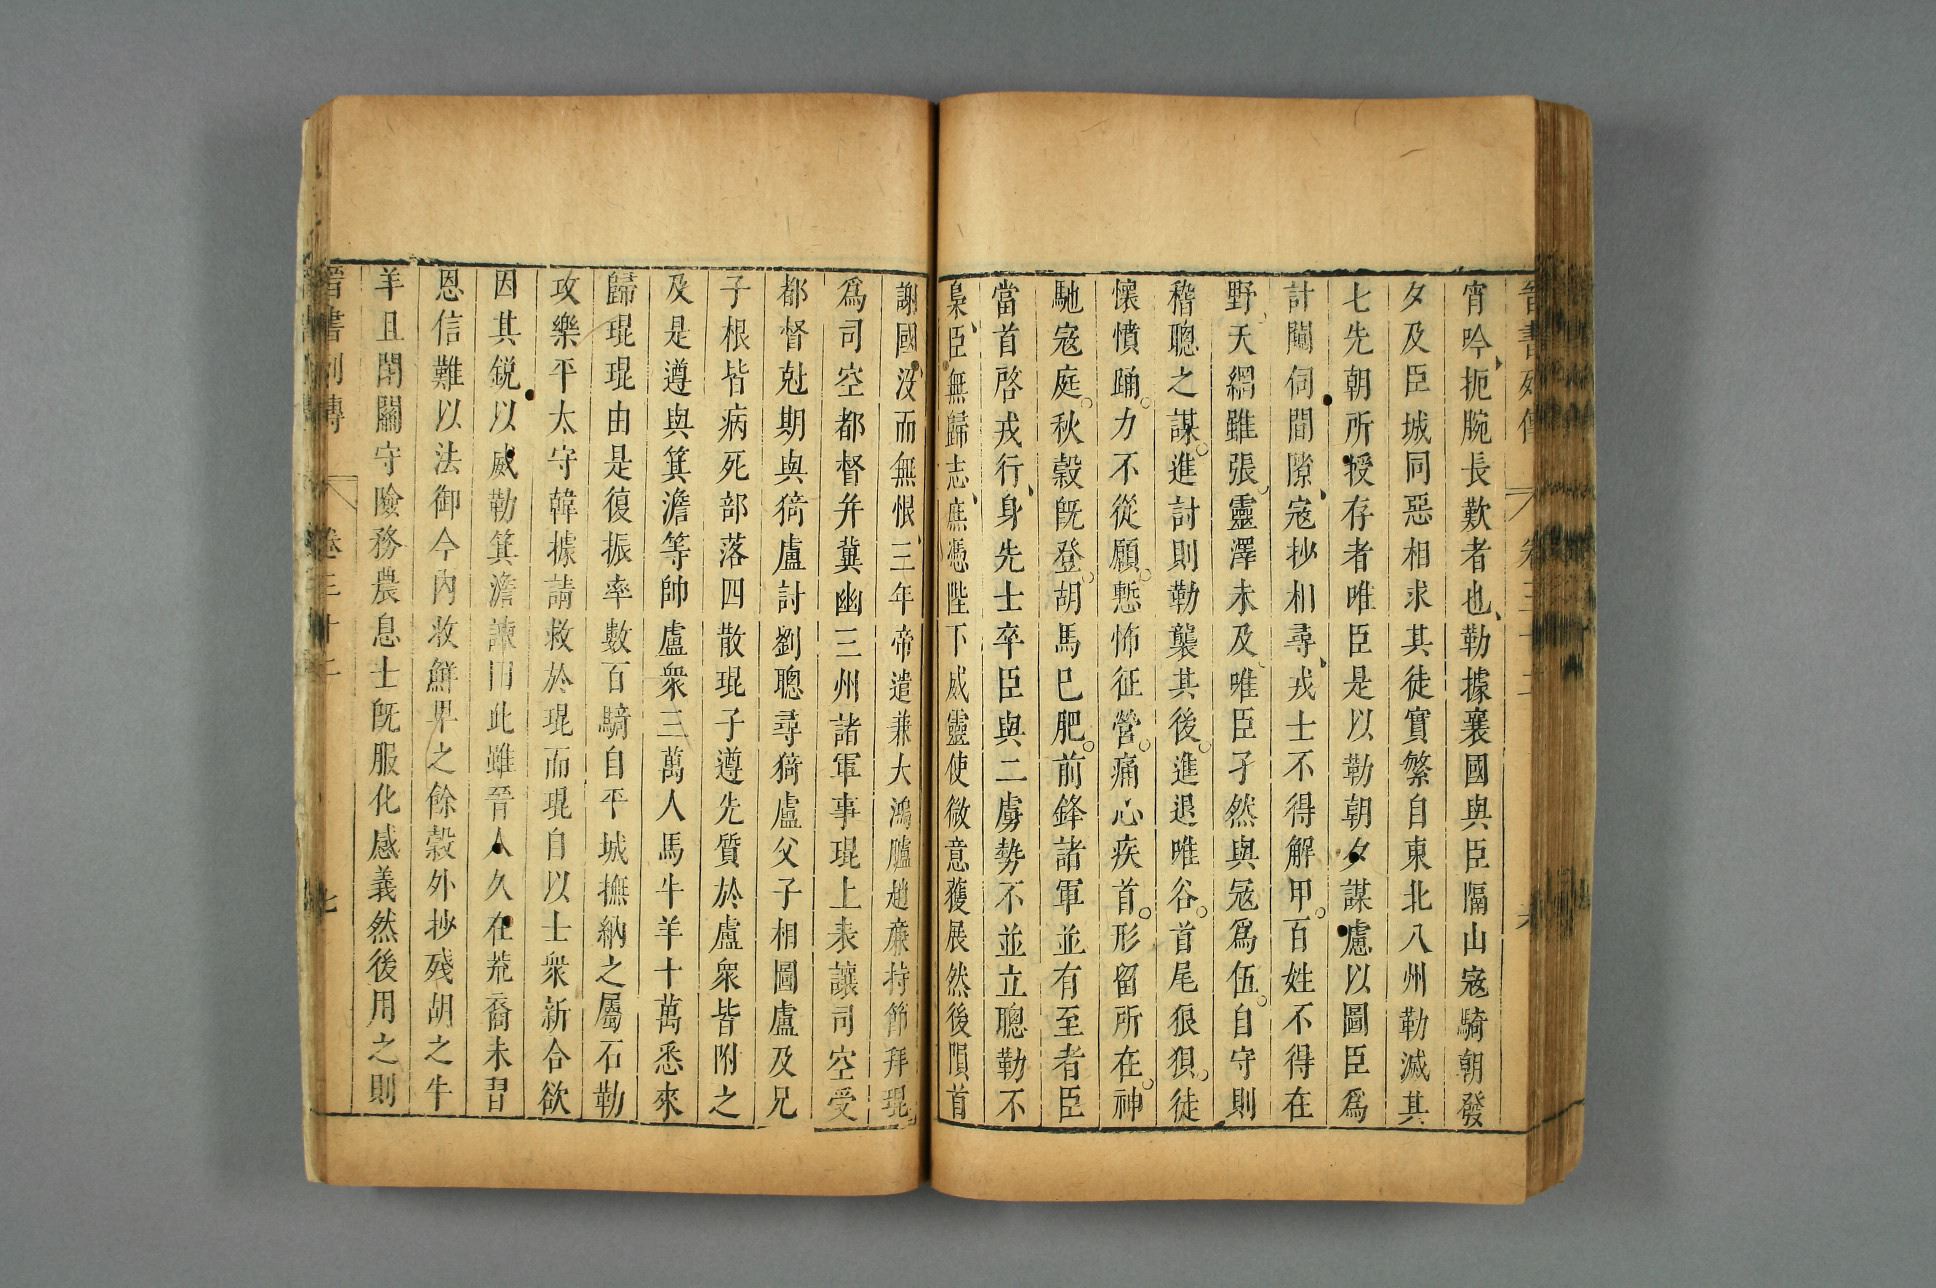 晉書列傳 卷三十二 六
宵吟、扼腕長歎者也、勒據襄國與臣隔山寇騎朝發
夕及臣城同惡相求其徒實繁自東北八州勒滅其
七先朝所授存者唯臣是以勒朝夕謀慮以圖臣爲
計闚伺間隙、寇抄相尋、戎士不得解甲。百姓不得在
野、天網雖張、靈澤未及、唯臣孑然與寇爲伍。自守則
稽聰之謀。進討則勒襲其後。進退唯谷。首尾狼狽。徒
懷憤踊。力不從願。慙怖征營。痛心疾首。形留所在。神
馳寇庭。秋穀旣登。胡馬已肥。前鋒諸軍並有至者臣
當首啓戎行、身先士卒臣與二虜勢不並立聰勒不
梟、臣無歸志、庶憑陛下威靈使微意獲展然後隕首
謝國、沒而無恨、三年帝遣兼大鴻臚趙廉持節拜琨
爲司空都督并冀幽三州諸軍事琨上表讓司空受
都督尅期與猗盧討劉聰尋猗盧父子相圖盧及兄
子根皆病死部落四散琨子遵先質於盧衆皆附之
及是遵與箕澹等帥盧衆三萬人馬牛羊十萬悉來
歸琨琨由是復振率數百騎自平城撫納之屬石勒
攻樂平太守韓據請救於琨而琨自以士衆新合欲
因其銳以威勒箕澹諫曰此雖晉人久在荒裔未習
恩信難以法御今內收鮮卑之餘穀外抄殘胡之牛
羊且閉關守險務農息士旣服化感義然後用之則
晉書列傳 卷三十二 七